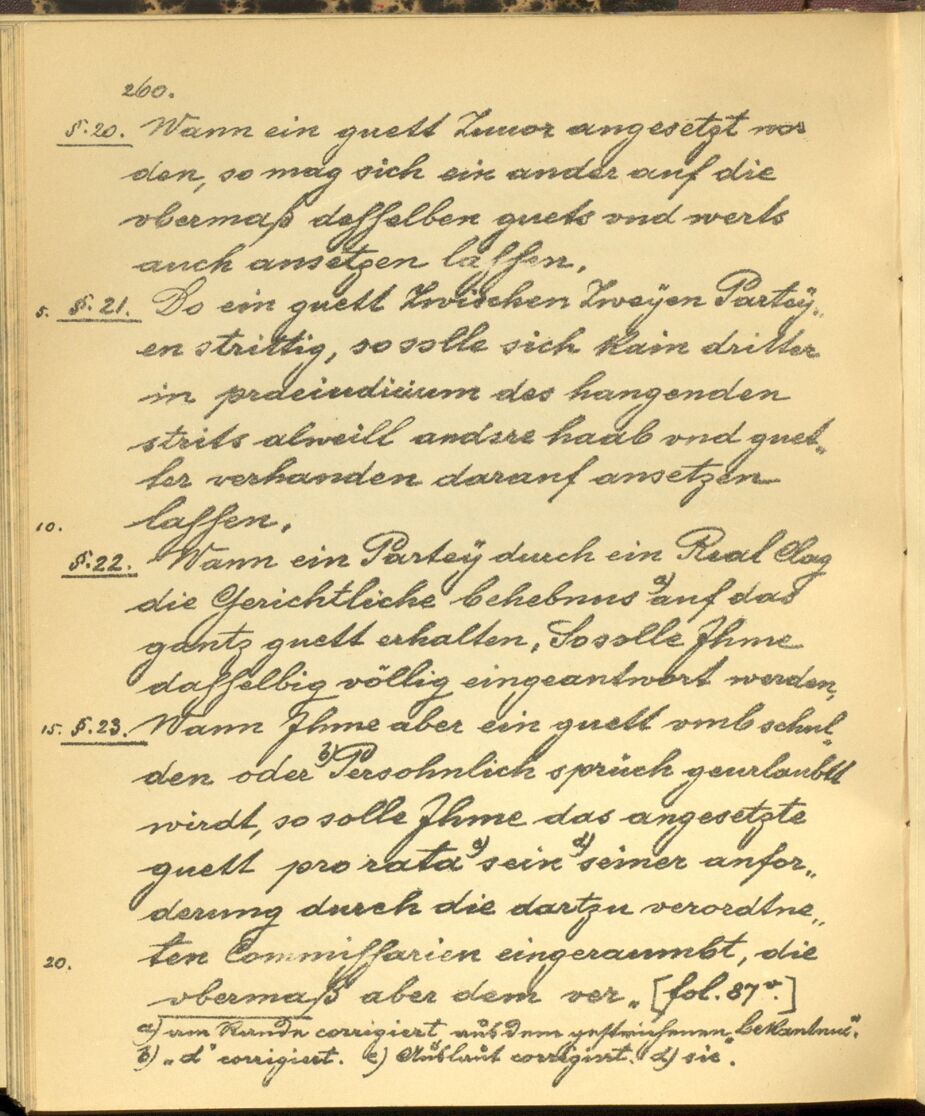 260.
§.20. Wann ein guett Zuuor angesetzt wor
den, so mag sich ein ander auf die
vbermaß desselben guets vnd werts
auch ansetzen lassen.
5. §.21. Do ein guett Zwischen Zweÿen Parteÿ„
en strittig, so solle sich kain dritter
in praeiudicium des hangenden
strits alweill andere haab vnd guet„
ter verhanden darauf ansetzen
10. lassen.
§.22. Wann ein Parteÿ durch ein Real Clag
die Gerichtliche behebnus a) auf das
gantz guett erhalten, So solle Ihme
dasselbig völlig eingeantwort werden,
15. §.23. Wann Ihme aber ein guett vmb schul„
den oder b) Persohnlich sprüch geurlaubtt
wirdt, so solle Ihme das angesetzte
guett pro rata c) sein d) seiner anfor„
derung durch die dartzu verordtne„
20. ten Commissarien eingeraumbt, die
vbermaß aber dem ver„ [fol. 87v.]
a) am Rande corrigiert aus dem gestrichenen „bekantnus".
b) „d" corrigiert. c) Auslaut corrigiert. d) sic.